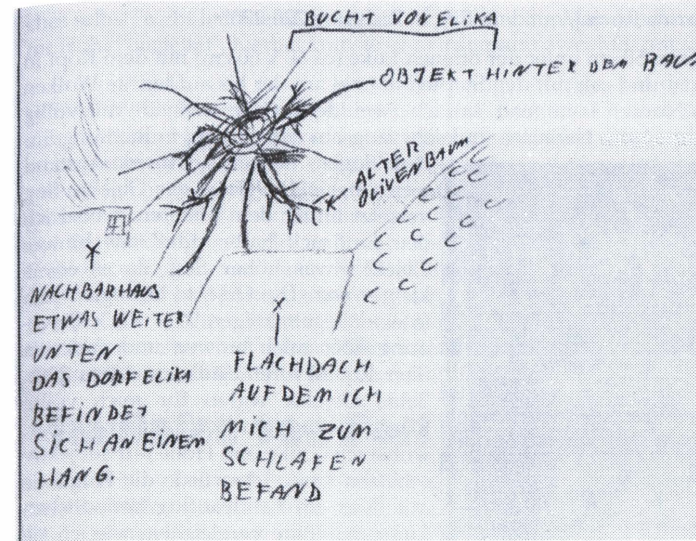 BUCHT VON ELIKA
OBJEKT HINTER DEM BAUM
ALTER
OLIVENBAUM
NACHBARHAUS
ETWAS WEITER
UNTEN.
DAS DORF ELIKA
BEFINDET
SICH AN EINEM
HANG.
FLACHDACH
AUF DEM ICH
MICH ZUM
SCHLAFEN
BEFAND